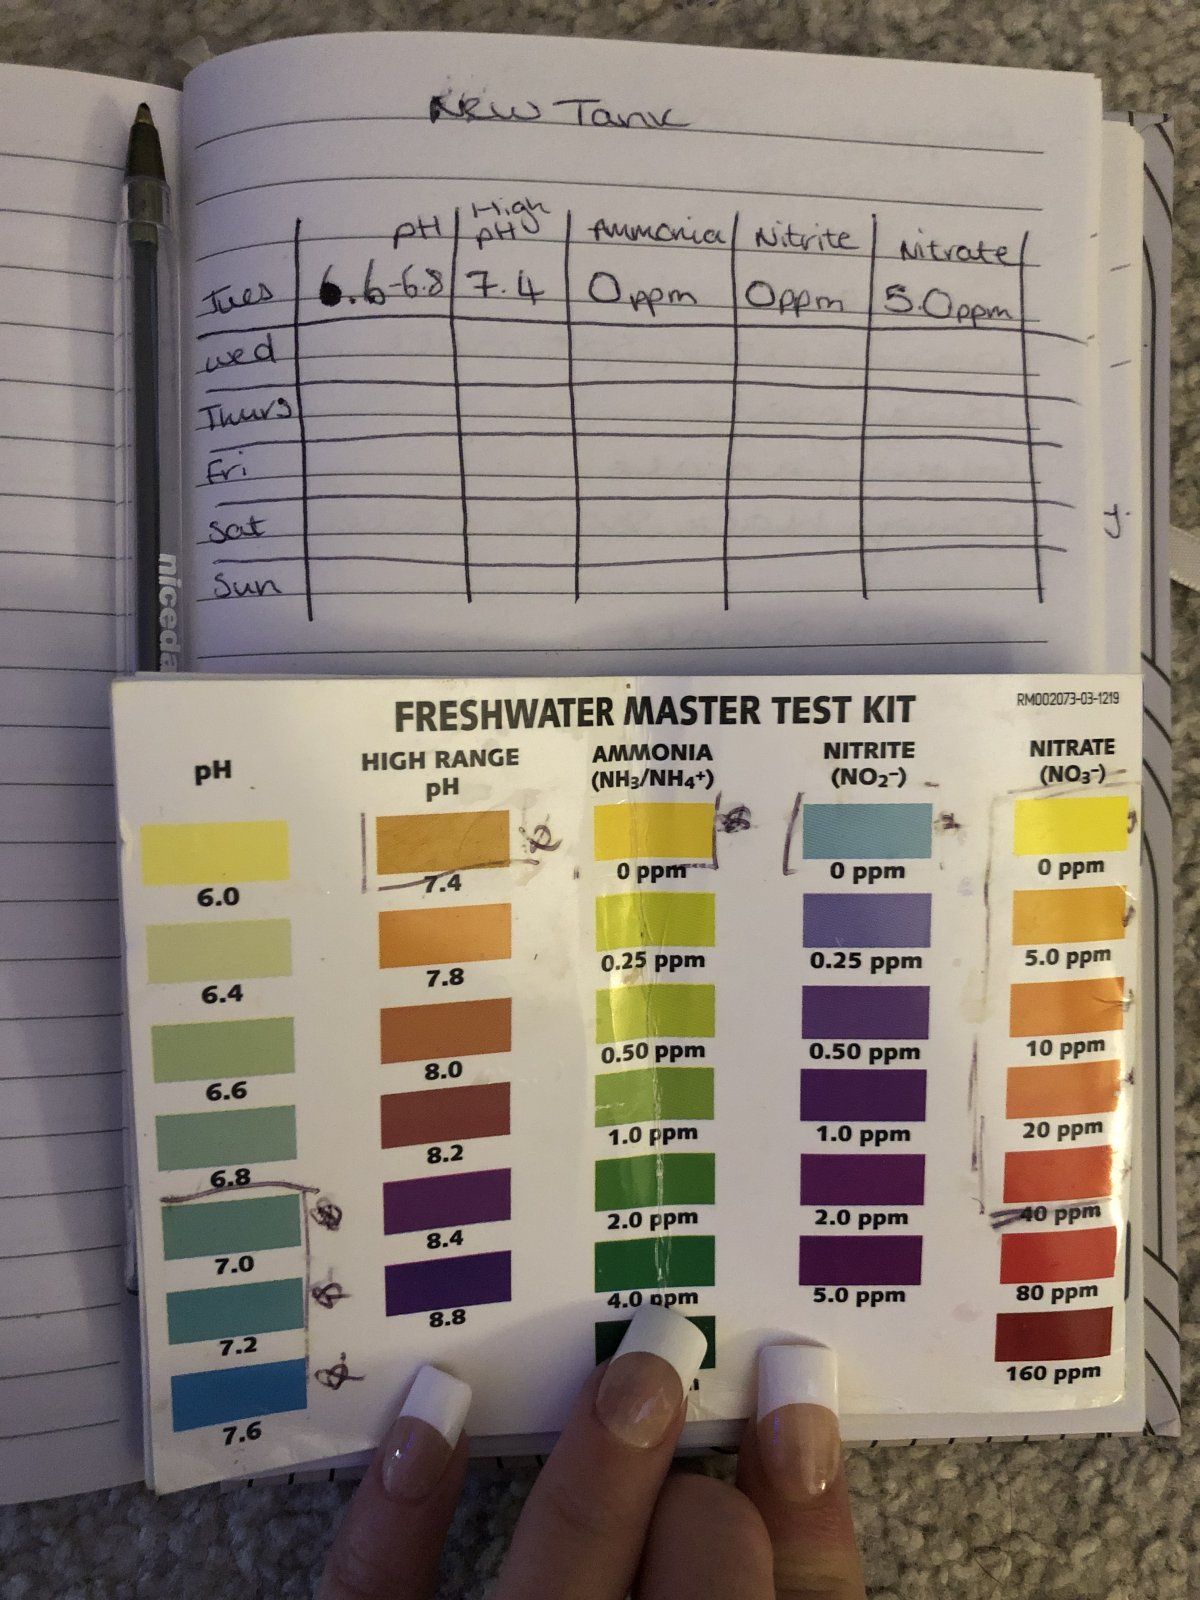 New Tank
pH High pH Ammonia Nitrite Nitrate
Tues 6.6-6.8 7.4 0ppm 0ppm 5.0ppm
Wed
Thurs
Fri
Sat
Sun
y.
niceda
FRESHWATER MASTER TEST KIT
RM002073-03-1219
pH HIGH RANGE pH AMMONIA (NH3/NH4+) NITRITE (NO2-) NITRATE (NO3-)
6.0 7.4 0 ppm 0 ppm 0 ppm
6.4 7.8 0.25 ppm 0.25 ppm 5.0 ppm
6.6 8.0 0.50 ppm 0.50 ppm 10 ppm
6.8 8.2 1.0 ppm 1.0 ppm 20 ppm
7.0 8.4 2.0 ppm 2.0 ppm 40 ppm
7.2 8.8 4.0 ppm 5.0 ppm 80 ppm
7.6 160 ppm